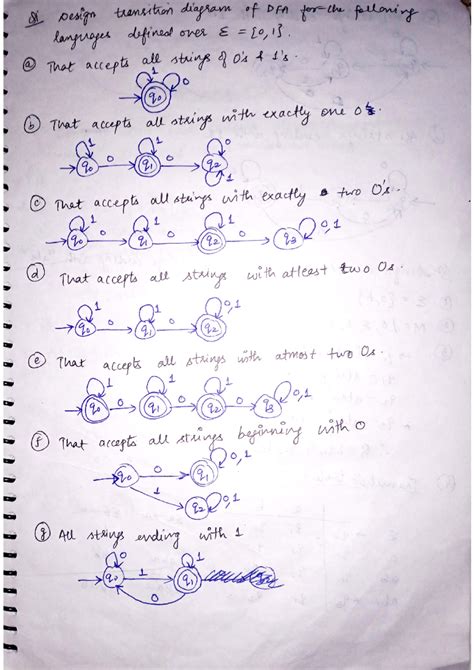 Q1 Design transition diagram of DFA for the following
languages defined over Ɛ = {0,1}.
(a) That accepts all strings of 0's & 1's.
1 0
q0
(b) That accepts all strings with exactly one 0
1 1 0
q0 0 q1 0 q2
1
(c) That accepts all strings with exactly two 0's.
1 1 1
q0 0 q1 0 q2 0 q3 0,1
(d) That accepts all strings with atleast two 0s.
1 1 0,1
q0 0 q1 0 q2
(e) That accepts all strings with atmost two 0s.
1 1 1
q0 0 q1 0 q2 0 q3 0,1
(f) That accepts all strings beginning with 0
q0 0 q1 0,1
1 q2 0,1
(g) All strings ending with 1
0 1
q0 1 q1
0